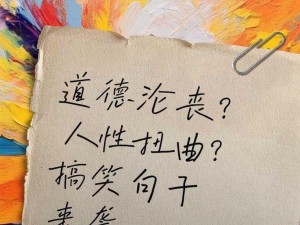 道德沦丧？
人性扭曲？
搞笑句子
来袭